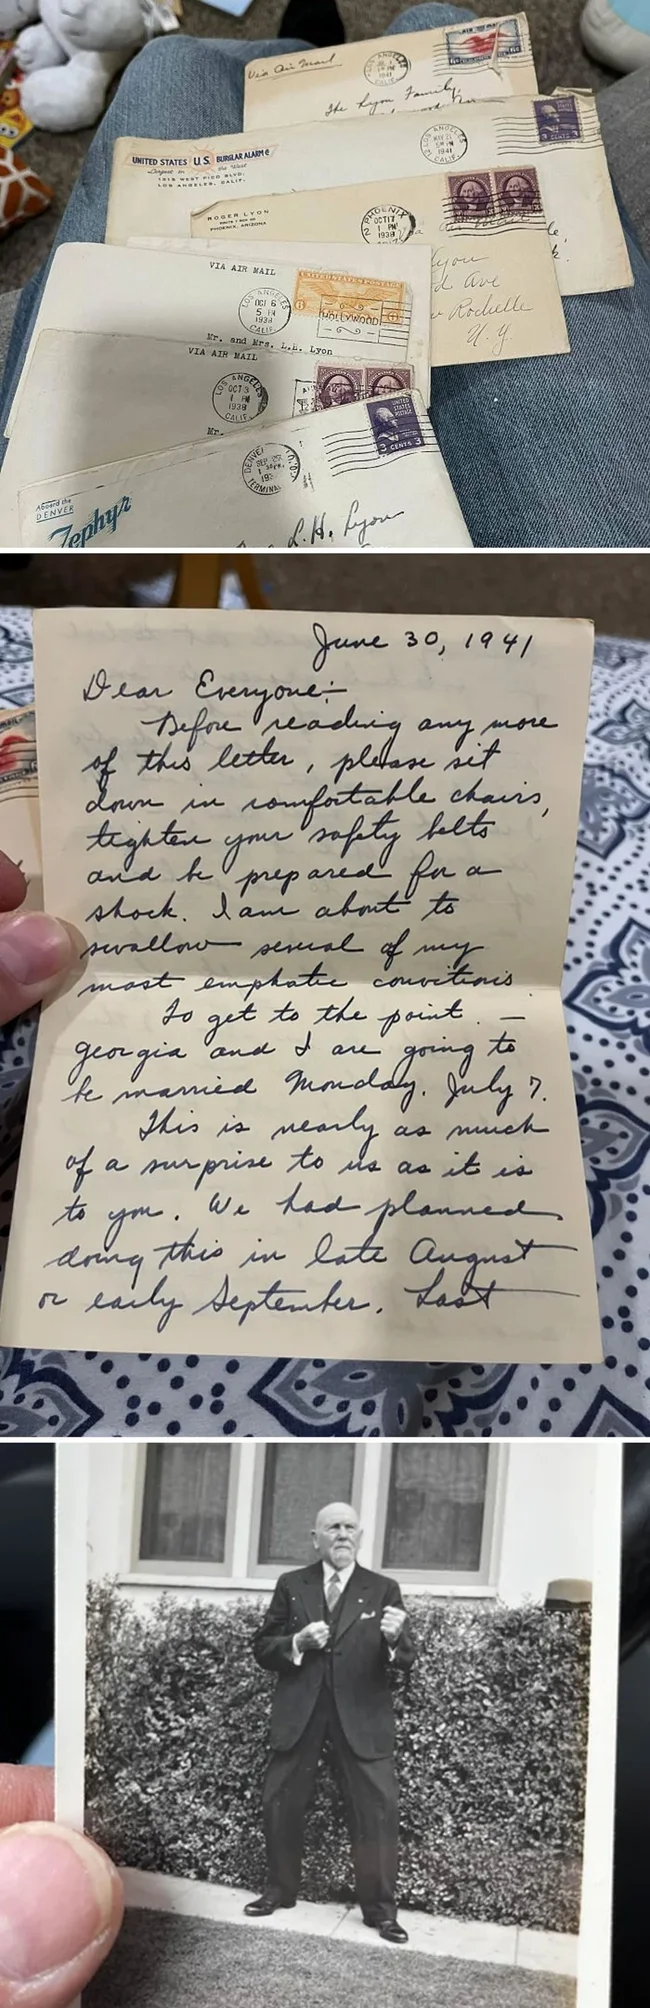 Via Air Mail
LOS ANGELES
1941
CALIF.
6¢
The Lyon Family,
LOS ANGELES
5 PM
1941
CALIF.
3 CENTS 3
UNITED STATES U.S. BURGLAR ALARM Co
Largest in the West
1919 WEST PICO BLVD.
LOS ANGELES, CALIF.
ROGER LYON
PHOENIX, ARIZONA
2 PHOENIX
OCT 17
1 PM
1938
Lyon
d Ave
w Rochelle
N.Y.
VIA AIR MAIL
UNITED STATES POSTAGE
6
LOS ANGELES
OCT 6
5 PM
1938
CALIF.
HOLLYWOOD
Mr. and Mrs. L.H. Lyon
VIA AIR MAIL
LOS ANGELES
OCT 3
1 PM
1938
CALIF.
Mr.
UNITED
STATES
POSTAGE
3 CENTS 3
DENVER
SEP 29
TERMINAL
Aboard the
DENVER
Zephyr
L.H. Lyon
June 30, 1941
Dear Everyone:—
Before reading any more
of this letter, please sit
down in comfortable chairs,
tighten your safety belts
and be prepared for a
shock. I am about to
swallow several of my
most emphatic convitions
To get to the point. —
Georgia and I are going to
be married Monday, July 7.
This is nearly as much
of a surprise to us as it is
to you. We had planned
doing this in late August
or early September. Last